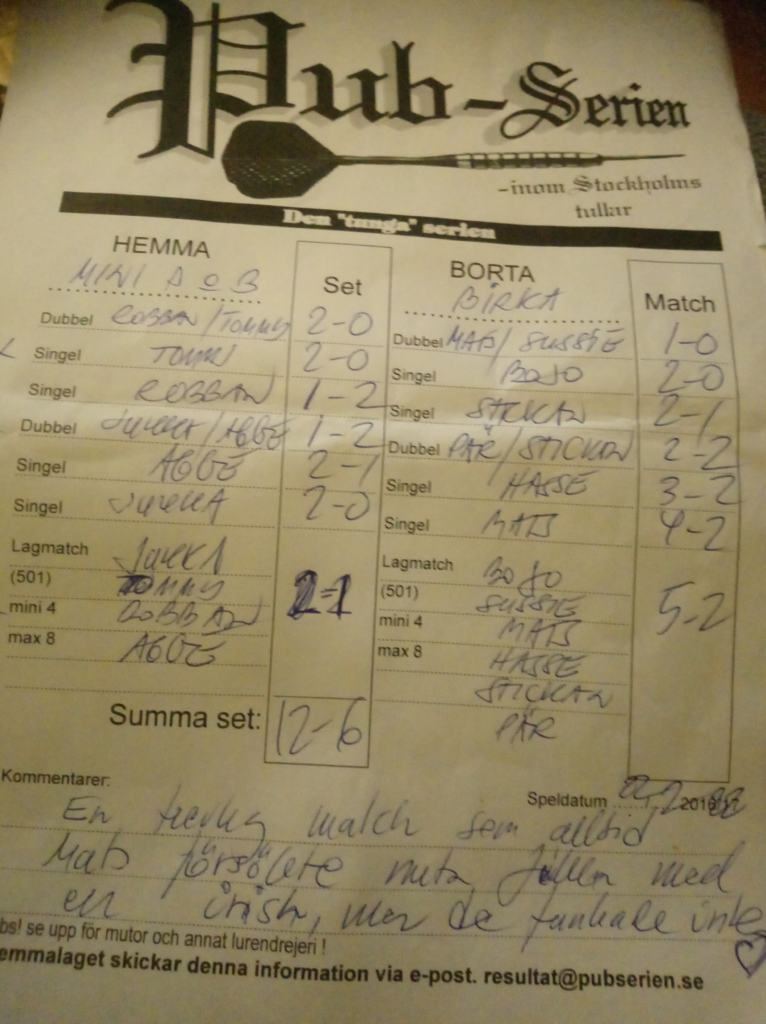 Pub-Serien
-inom Stockholms
tullar
Den "tunga" serien
HEMMA Set BORTA Match
MINI A o B BIRKA
Dubbel ROBBAN/TOMMY 2-0 Dubbel MATS/SUSSIE 1-0
Singel TOMMY 2-0 Singel BOJO 2-0
Singel ROBBAN 1-2 Singel STICKAN 2-1
Dubbel JUKKA/ABBE 1-2 Dubbel PÄR/STICKAN 2-2
Singel ABBE 2-1 Singel HASSE 3-2
Singel JUKKA 2-0 Singel MATS 4-2
Lagmatch JUKKA Lagmatch BOJO
(501) TOMMY 2-1 (501) SUSSIE 5-2
mini 4 ROBBAN mini 4 MATS
max 8 ABBE max 8 HASSE
STICKAN
Summa set: 12-6 PÄR
Kommentarer: Speldatum
En trevlig match som alltid
Mats försökte muta med
en irish, men de funkade inte ♡
bs! se upp för mutor och annat lurendrejeri !
emmalaget skickar denna information via e-post. resultat@pubserien.se